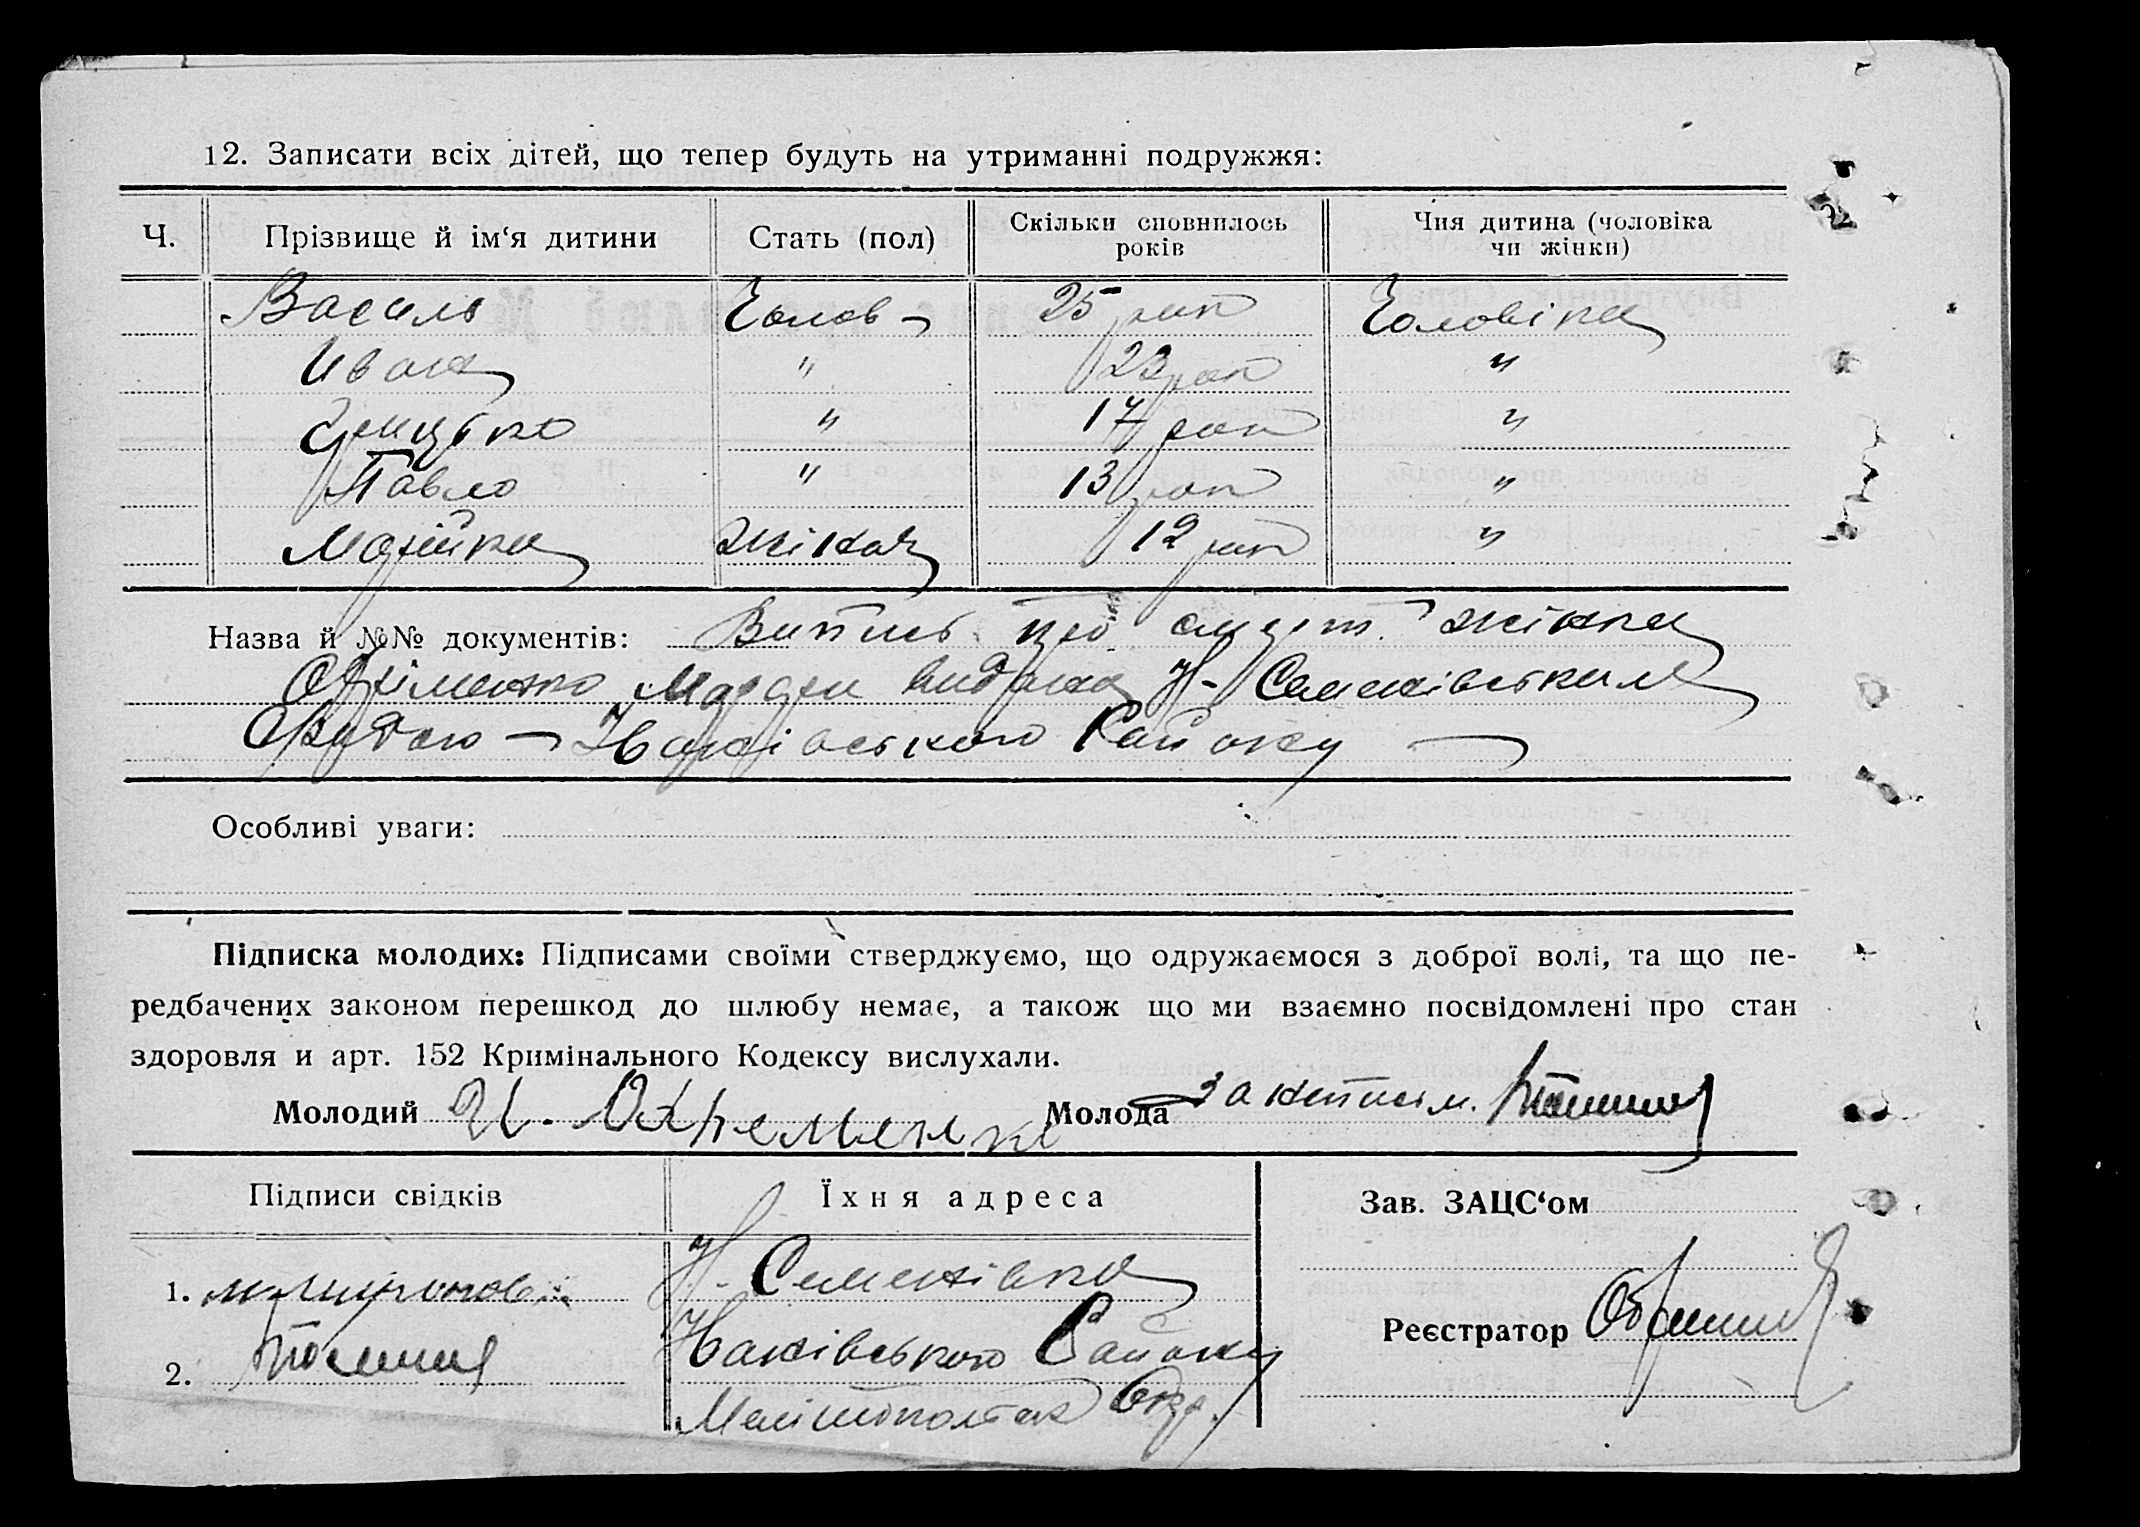 12. Записати всіх дітей, що тепер будуть на утриманні подружжя:
Ч. Прізвище й ім‘я дитини Стать (пол) Скільки сповнилось років Чия дитина (чоловіка чи жінки)
Василь Чолов 25 рок Чоловіка
Иван " 23 рок "
" 17 рок "
Павло " 13 рок "
Марійка Жіноч 12 рок "
Назва й №№ документів: Випись про смерт. жінки
Охріменко Марфи видана Н-Семенівською
Радою Іванівського Району
Особливі уваги:
Підписка молодих: Підписами своїми стверджуємо, що одружаємося з доброї волі, та що пе-
редбачених законом перешкод до шлюбу немає, а також що ми взаємно посвідомлені про стан
здоровля и арт. 152 Кримінального Кодексу вислухали.
Молодий И. Охременко Молода за неписьм.
Підписи свідків Їхня адреса Зав. ЗАЦС‘ом
1. Н-Семенівка
Району Реєстратор
2.
Мелітопольск Окр.